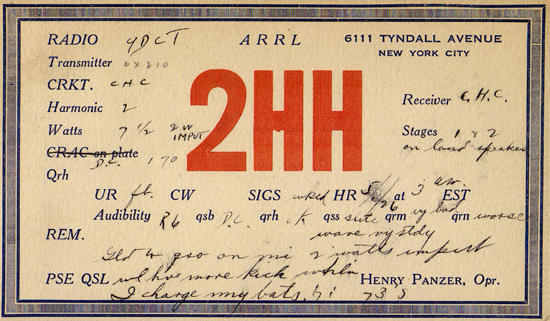 RADIO 9DCT ARRL 6111 TYNDALL AVENUE
NEW YORK CITY
Transmitter UX210
CRKT. CHC
2HH
Harmonic 2
Receiver C.H.C.
Watts 7 1/2 2 W INPUT
Stages 1 & 2
on loud speaker
CR.AC on plate
D.C. 170
Qrh
UR fb. CW SIGS wked HR at 3 AM. EST
Audibility R6 qsb D.C. qrh OK qss qrm vy bad qrn worse
REM. wave vy stdy
Gld to qso on mi 2 watts input
PSE QSL wl hve more kick
HENRY PANZER, Opr.
I charge my bats. hi 73s